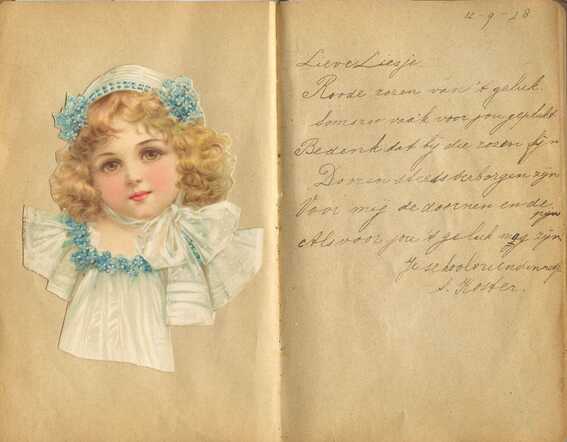 12-9-28
Lieve Liesje
Roode rozen van 't geluk.
Bedenk dat bij die rozen fijn
Doornen steeds verborgen zijn
Voor mij de doornen en de
pijn
Als voor jou 't geluk mag zijn
Je schoolvriendinnetje
S. Koster.